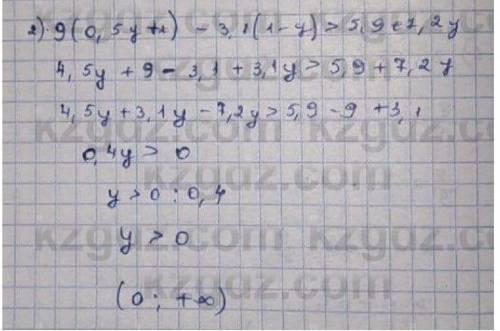 2) 9(0,5y+1) - 3,1(1-y) > 5,9+7,2y
4,5y + 9 - 3,1 + 3,1y > 5,9 + 7,2y
4,5y + 3,1y - 7,2y > 5,9 - 9 + 3,1
0,4y > 0
y > 0 : 0,4
y > 0
(0 ; +∞)
kzgdz.com